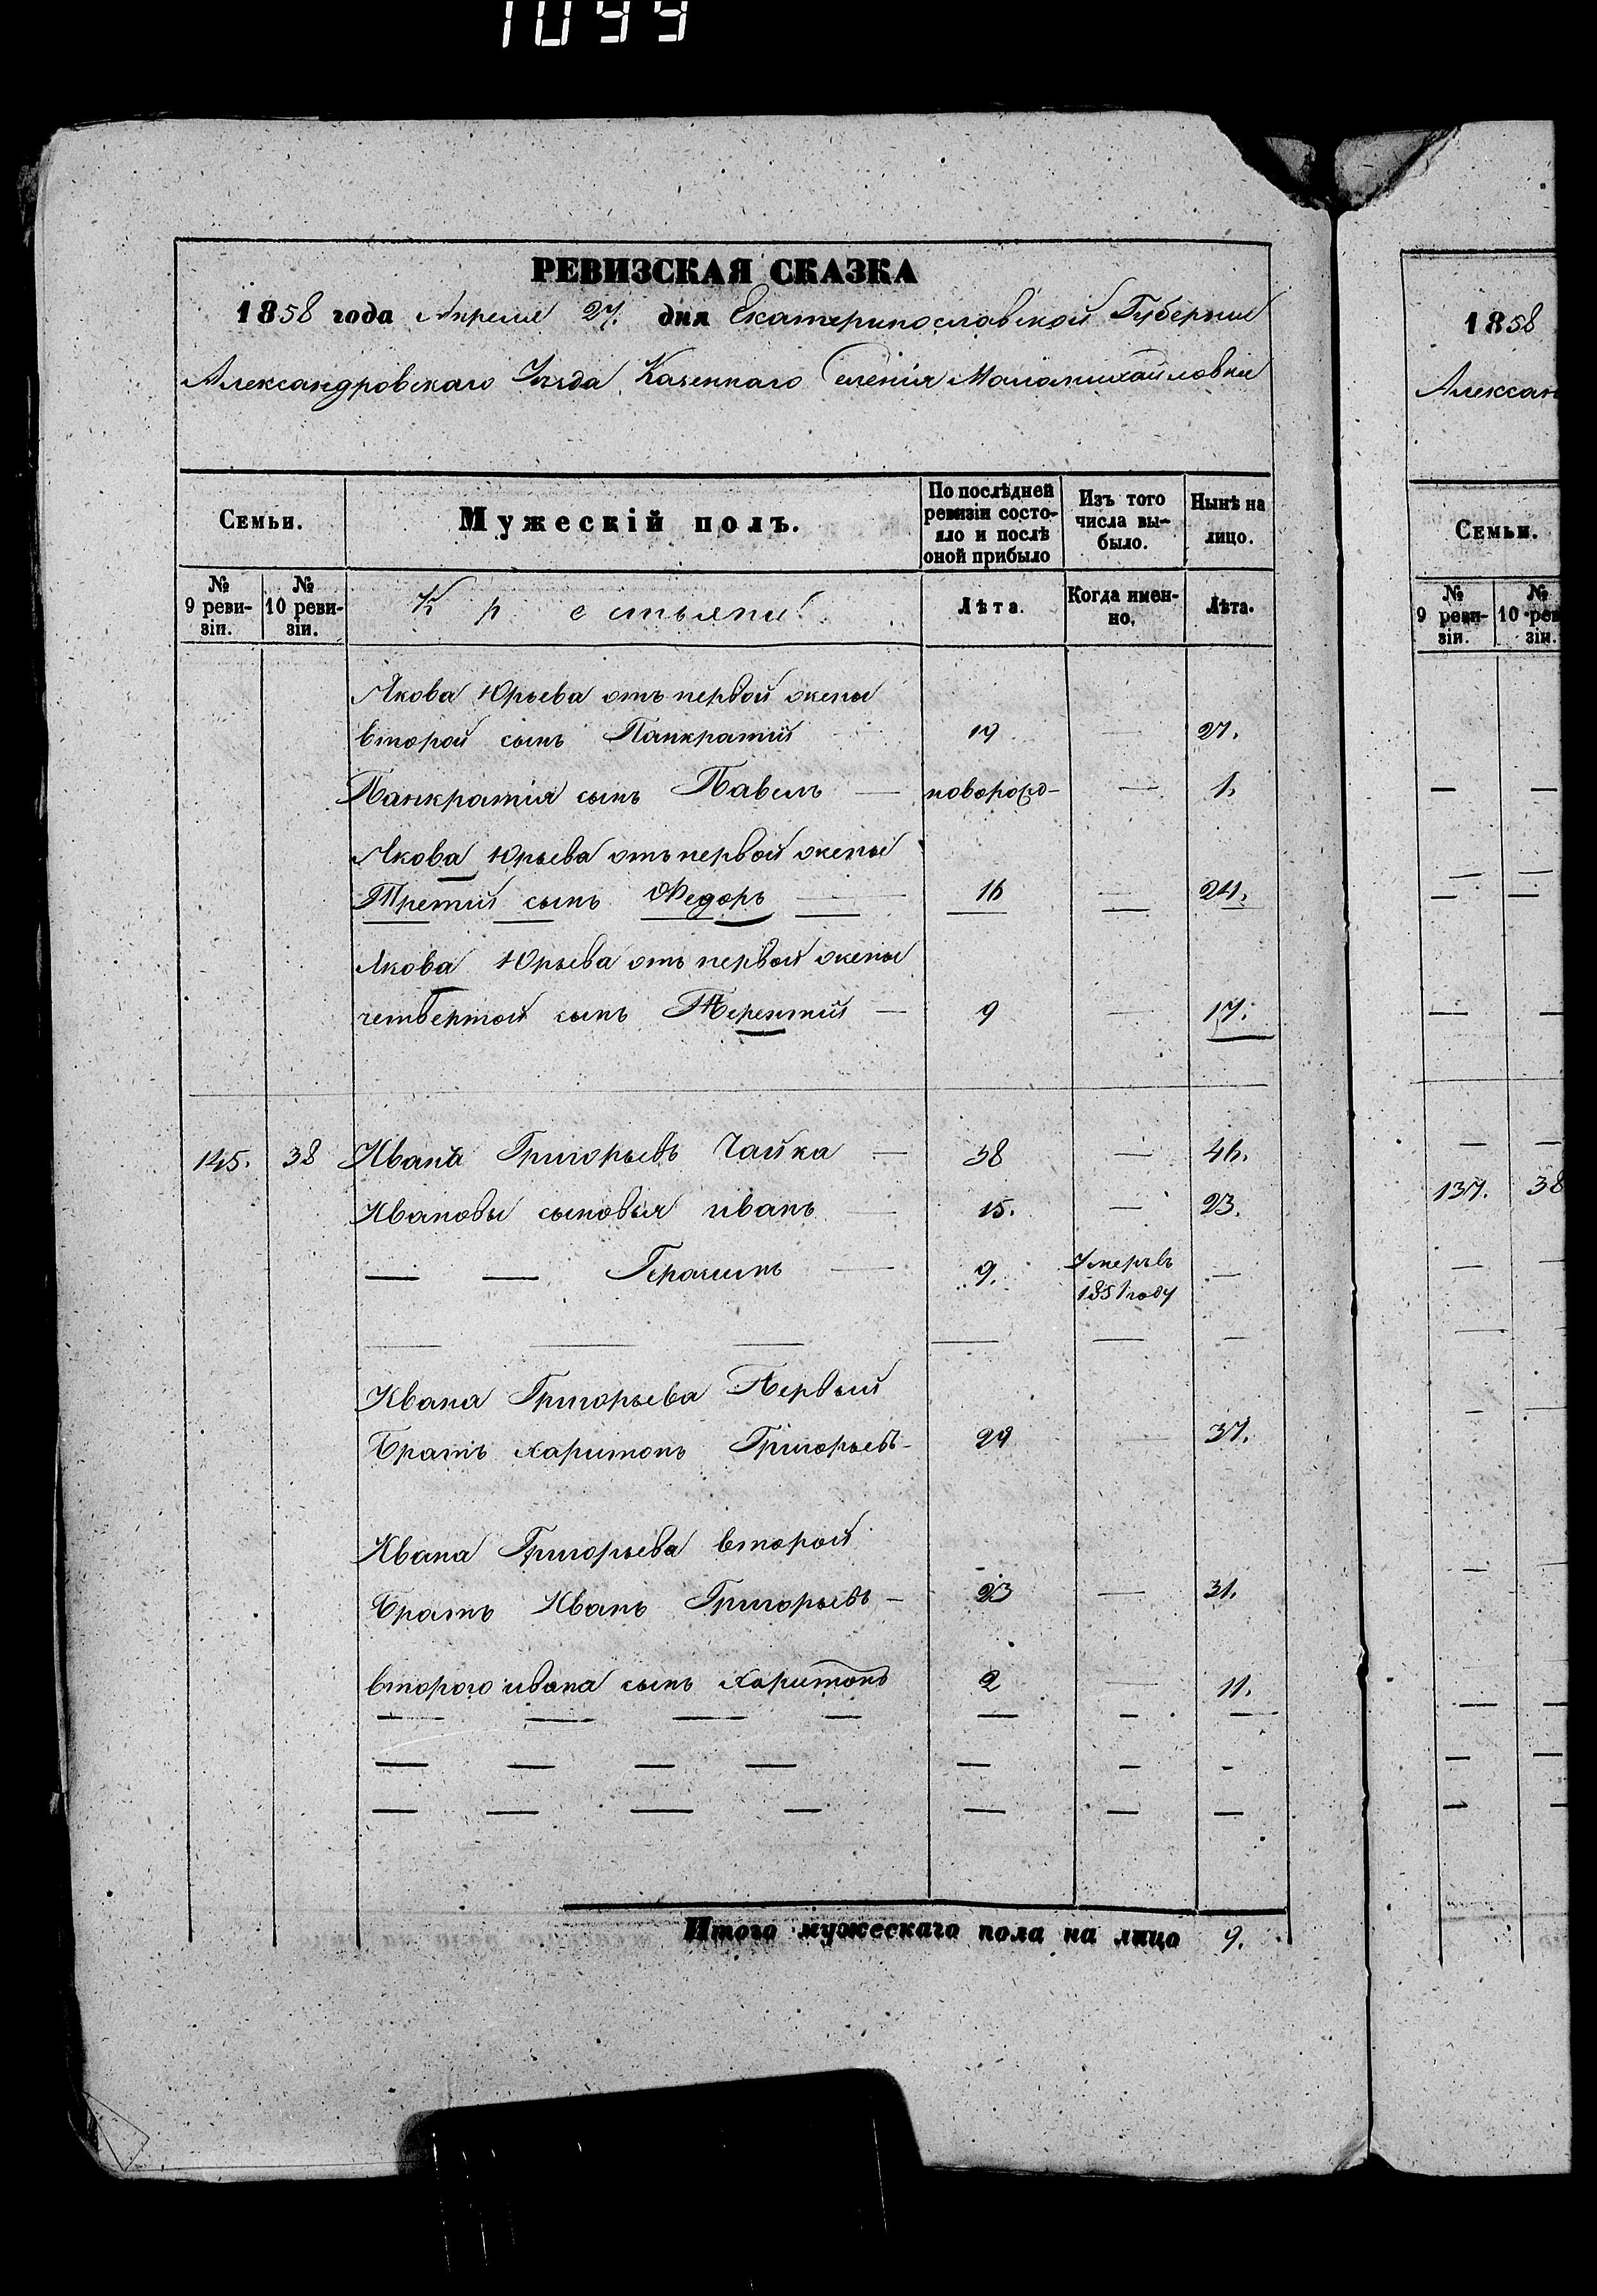 1099
РЕВИЗСКАЯ СКАЗКА
1858 года Апреля 27. дня Екатеринославской Губернии
Александровскаго Уезда Казеннаго Селенія Маломихайловки
Семьи.
Мужескій полъ.
По послѣдней ревизіи состояло и послѣ оной прибыло
Изъ того числа выбыло.
Нынѣ на лицо.
№ 9 ревизіи.
№ 10 ревизіи.
Крестьяни
Лѣта.
Когда именно.
Лѣта.
Якова Юрьева отъ первой жены
второй сынъ Панкратий 19 — 27.
Панкратія сынъ Павелъ — новорожд — 1.
Якова Юрьева отъ первой жены
Третий сынъ Федоръ — 16 — 24.
Якова Юрьева отъ первой жены
четвертой сынъ Терентий — 9 — 17.
145. 38 Иванъ Григорьевъ Чайка — 38 — 46.
Ивановы сыновья иванъ — 15. — 23.
— — Герасимъ — 9. Умеръ въ 1851 году —
Ивана Григорьева Первый
Братъ Харитонъ Григорьевъ — 29 — 37.
Ивана Григорьева второй
Братъ Иванъ Григорьевъ — 23 — 31.
второго ивана сынъ Харитонъ 2 — 11.
Итого мужескаго пола на лицо 9.
1858
Алексан
Семьи.
№ 9 ревизіи.
№ 10 рев зіи.
137. 38